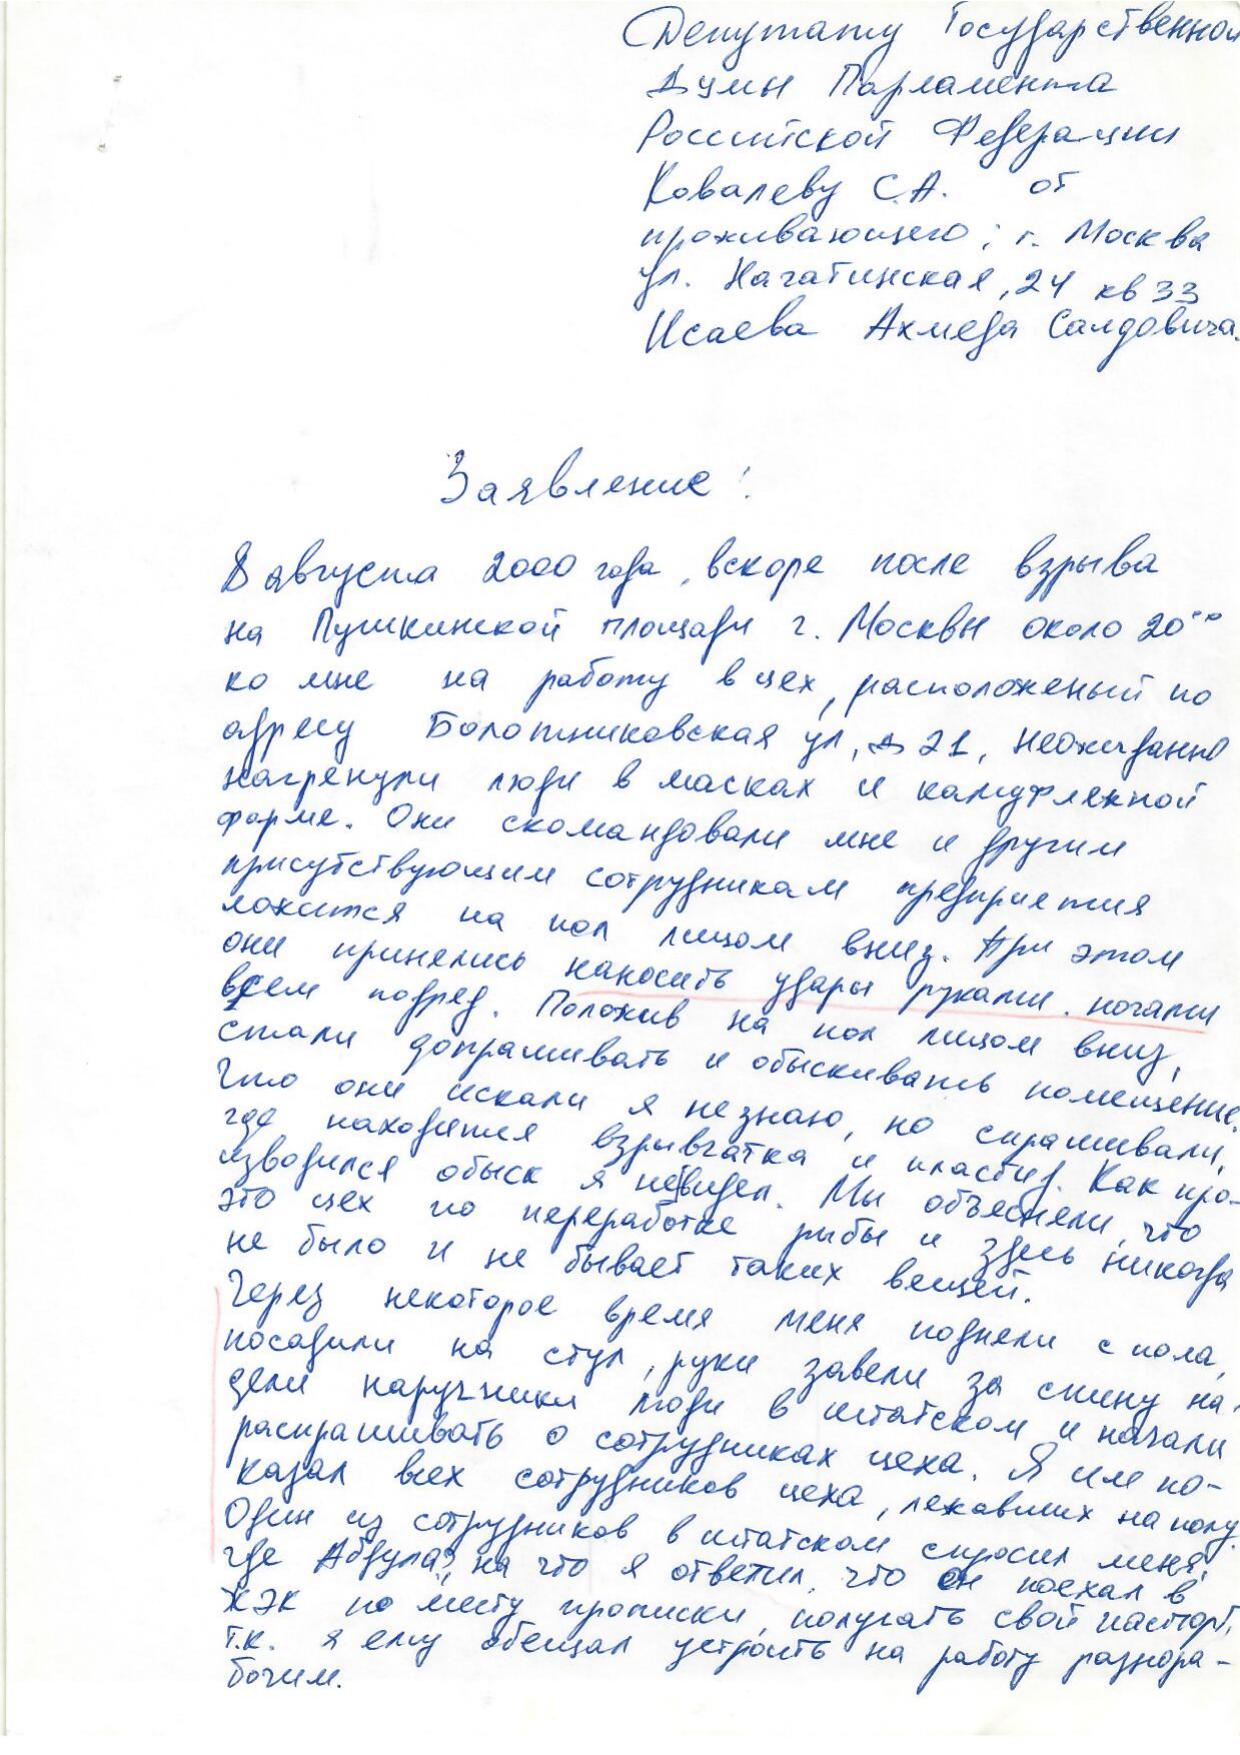 Депутату Государственной
Думы Парламента
Российской Федерации
Ковалеву С.А. от
проживающего: г. Москва
ул. Нагатинская, 24 кв 33
Исаева Ахмеда Саидовича.
Заявление!
8 августа 2000 года, вскоре после взрыва
на Пушкинской площади г. Москвы около 20⁰⁰
ко мне на работу в цех, расположеный по
адресу Болотниковская ул, д 21, неожиданно
нагрянули люди в масках и камуфляжной
форме. Они скомандовали мне и другим
присутствующим сотрудникам предприятия
ложится на пол лицом вниз. При этом
они принялись наносить удары руками, ногами
всем подряд. Положив на пол лицом вниз,
стали допрашивать и обыскивать помещение.
Что они искали я не знаю, но спрашивали,
где находится взрывчатка и пластид. Как про-
изводился обыск я не видел. Мы объясняли, что
это цех по переработке рыбы и здесь никогда
не было и не бывает таких вещей.
Через некоторое время меня подняли с пола,
посадили на стул, руки завели за спину на-
дели наручники люди в штатском и начали
распрашивать о сотрудниках цеха. Я им по-
казал всех сотрудников цеха, лежавших на полу.
Один из сотрудников в штатском спросил меня,
где Абдула?, на что я ответил, что он поехал в
ЖЭК по месту прописки, получать свой паспорт,
т.к. я ему обещал устроить на работу разнора-
бочим.